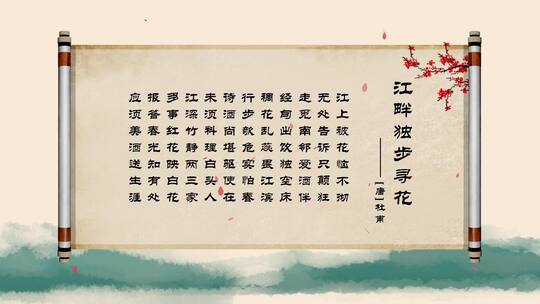 江畔独步寻花
——【唐】杜甫
江上被花恼不彻
无处告诉只颠狂
走觅南邻爱酒伴
经旬出饮独空床
稠花乱蕊裹江滨
行步欹危实怕春
诗酒尚堪驱使在
未须料理白头人
江深竹静两三家
多事红花映白花
报答春光知有处
应须美酒送生涯